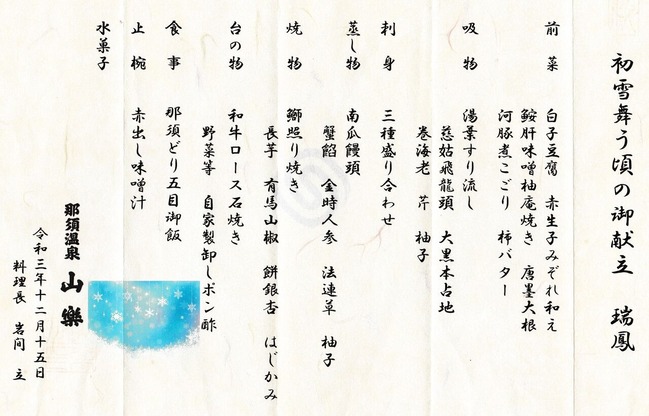 初雪舞う頃の御献立 瑞鳳
前菜 白子豆腐 赤生子みぞれ和え
鮟肝味噌柚庵焼き 唐墨大根
河豚煮こごり 柿バター
吸物 湯葉すり流し
慈姑飛龍頭 大黒本占地
巻海老 芹 柚子
刺身 三種盛り合わせ
蒸し物 南瓜饅頭
蟹餡 金時人参 法連草 柚子
焼物 鰤照り焼き
長芋 有馬山椒 餅銀杏 はじかみ
台の物 和牛ロース石焼き
野菜等 自家製卸しポン酢
食事 那須どり五目御飯
止椀 赤出し味噌汁
水菓子
那須温泉 山樂
令和三年十二月十五日
料理長 岩間 立